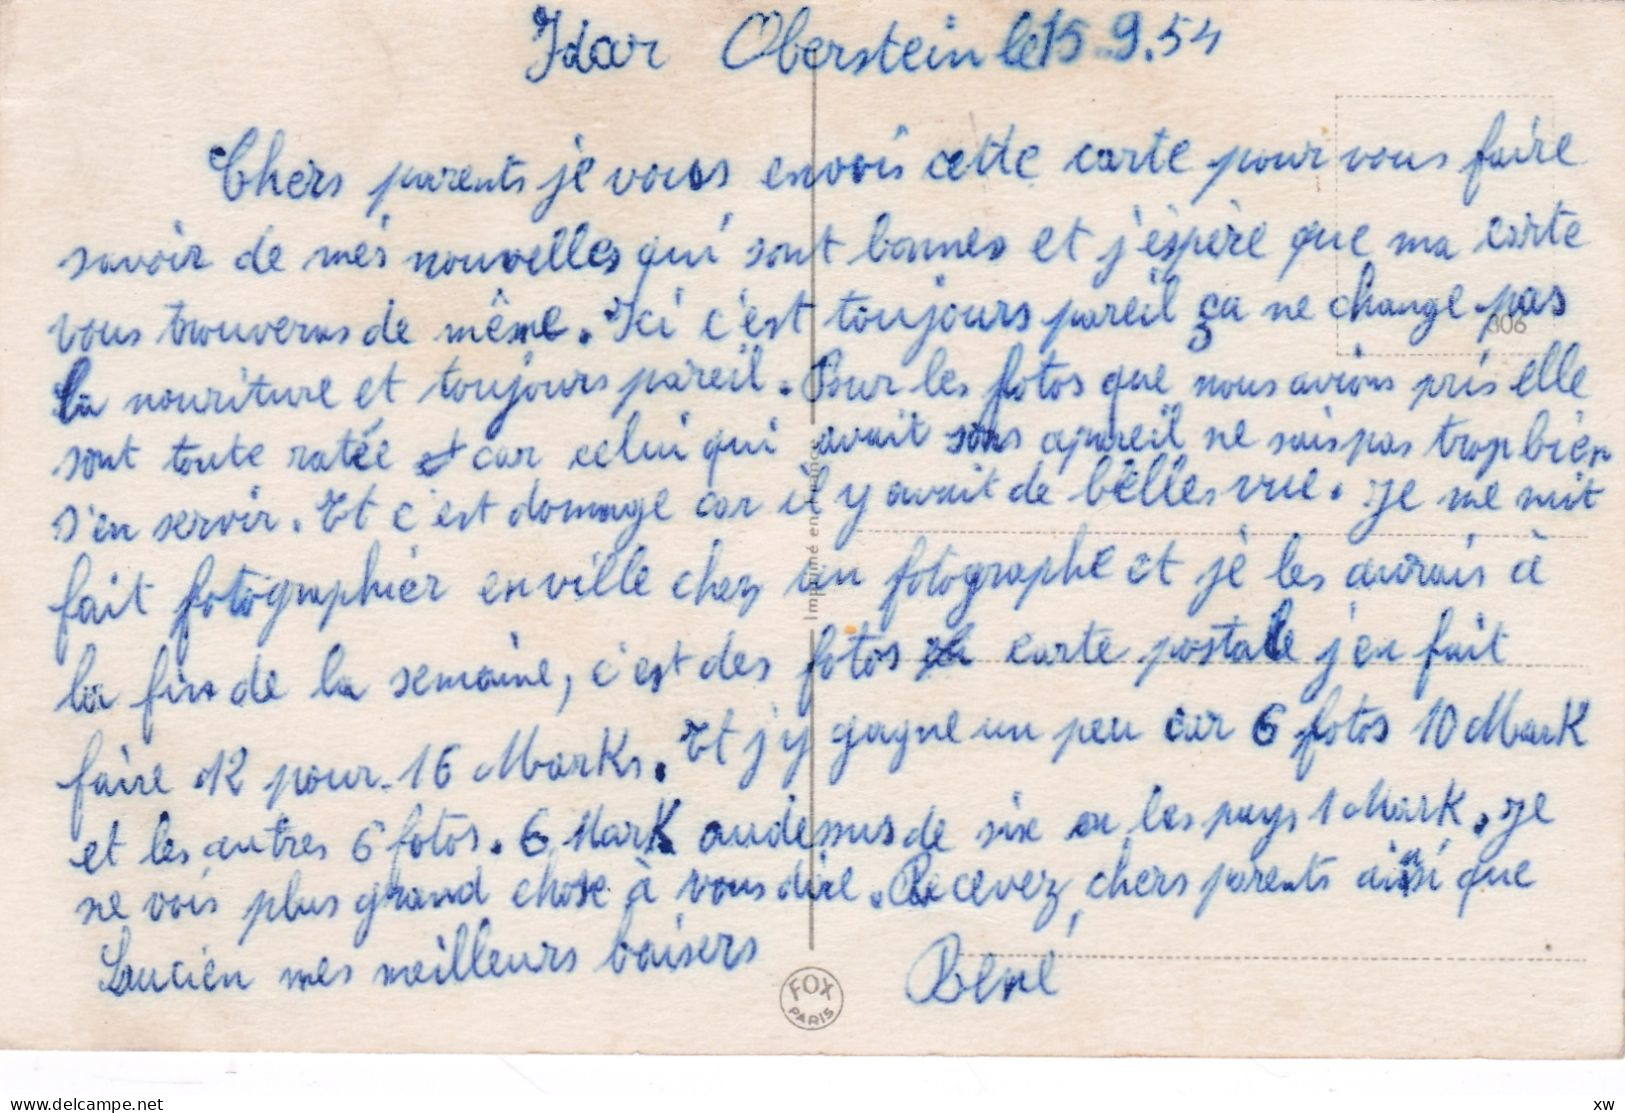 Idar Oberstein le 15.9.54
Chers parents je vous envois cette carte pour vous faire
savoir de mes nouvelles qui sont bonnes et j'éspère que ma carte
vous trouveras de même. Ici c'est toujours pareil ça ne change pas
la nouriture et toujours pareil. Pour les fotos que nous avions pris elle
sont toute ratée car celui qui avait sons apareil ne sais pas trop bien
s'en servir. Et c'est domage car il y avait de bélles vue. Je me suit
fait fotographier en ville chez un fotographe et je les aurais à
la fin de la semaine, c'est des fotos carte postale j'en fait
faire 12 pour 16 Marks. Et j'y gagne un peu car 6 fotos 10 Mark
et les autres 6 fotos. 6 Mark audessus de six on les pays 1 Mark. Je
ne vois plus grand chose à vous dire. Recevez chers parents ainsi que
Lucien mes meilleurs baisers
René
306
Imprimé en France
FOX
PARIS
www.delcampe.net
xw